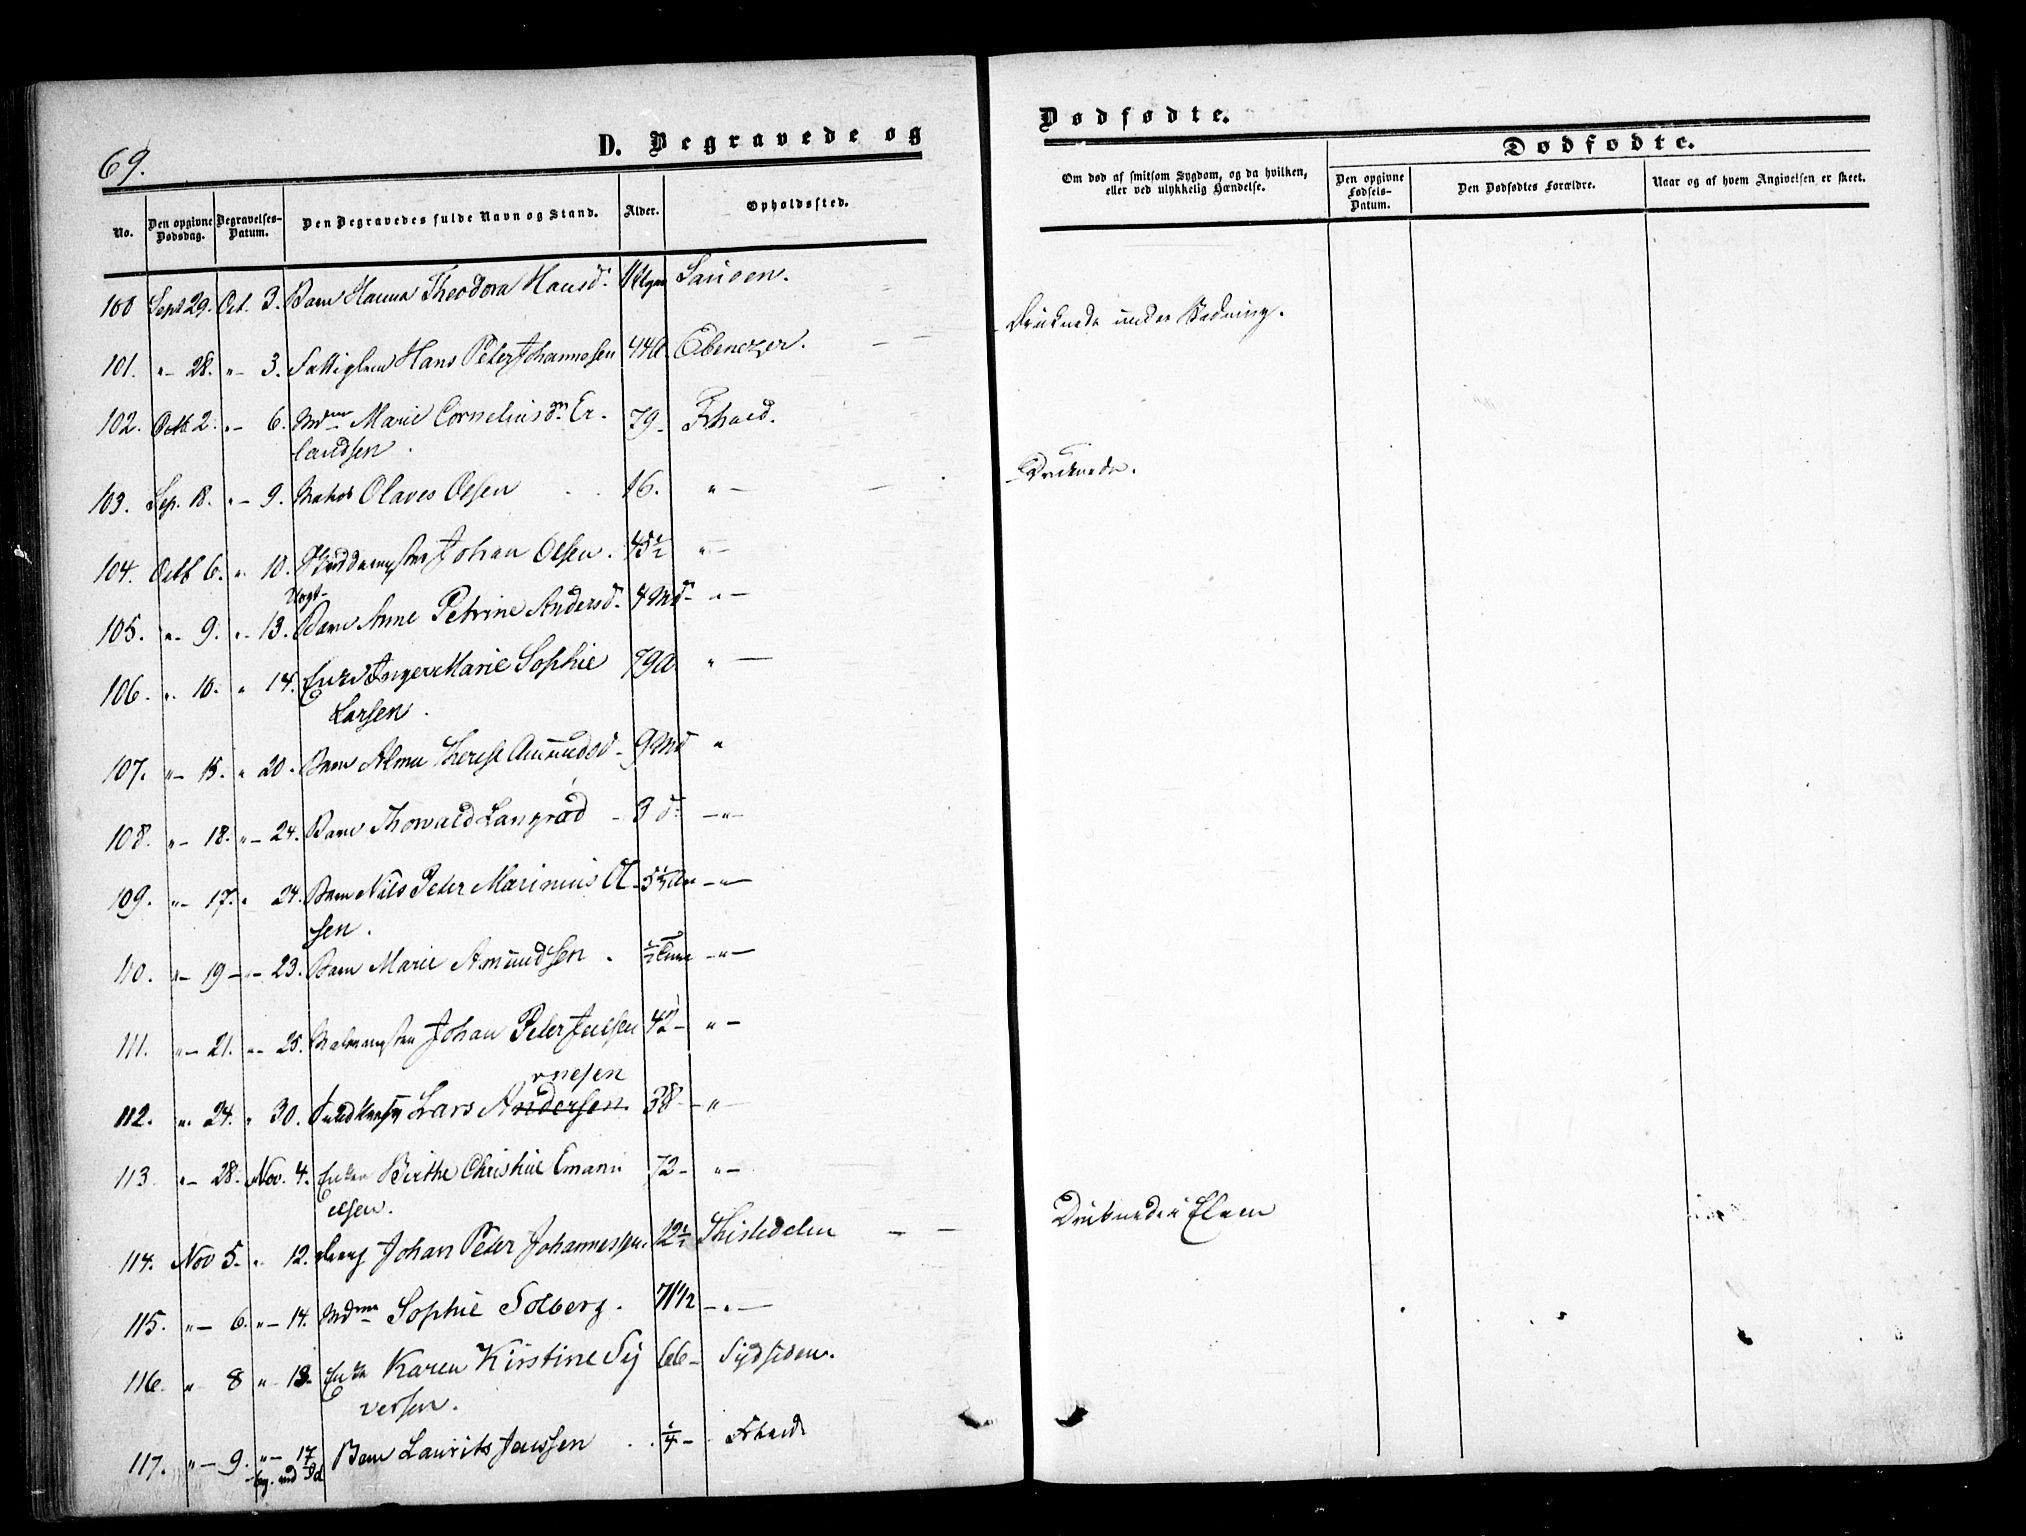 69.
D. Begravede og
No. Den opgivne Dødsdag. Begravelses-Datum. Den Begravedes fulde Navn og Stand. Alder. Opholdssted.
100 Sept 29. Oct. 3. Barn Hanna Theodora Hansd. Sanden.
101. " 28. "- 3. Hans Peter Johannesen 44 A Ebenezer.
102. Octb 2. "- 6. Mdm Marie Corneliusdn Er-
landsen. 79- Frhald.
103. Sep. 18. "- 9. Matros Olaves Olsen 16. "-
104. Octb 6. " 10. Johan Olsen. 45½ "-
105. "- 9. "- 13. Barn Anne Petrine Andersd. 4 Md "-
106. "- 10. " 14. Enke Inger Marie Sophie 79 A. "-
Larsen.
107. "- 15. " 20. Barn Alma Therese Amundsd - 9 Md "
108. "- 18. "- 24. Barn Thorvald Langrød - 3 d. -"-
109. "- 17. " 24. Barn Nils Peter Marinius Ol- -"-
sen.
110. "- 19 - "- 23. Barn Marie Amundsen. -"-
111. "- 21. "- 25. Johan Peter Julsen 42- "-
rnesen
112. "- 24. " 30. Lars Andersen. 38- "-
113. "- 28. Nov. 4. Enken Birthe Christine Emanu 72- "-
elsen.
114. Nov 5. "- 12. Dreng Johan Peter Johannessen. 12½ Thistedalen
115. "- 6. "- 14. Mdme Sophie Solberg. 71½ -"-
116. " 8 "- 13. Enke Karen Kirstine Sy 66- Sydsiden.
versen.
117. "- 9. "- 17 Barn Laurits Jenssen ¼- Frhald
Dødfødte.
Dødfødte.
Om død af smitsom Sygdom, og da hvilken,
eller ved ulykkelig Hændelse.
Den opgivne
Fødsels-
Datum.
Den Dødfødtes Forældre.
Naar og af hvem Angivelsen er skeet.
Druknede under Badning.
Druknede.
Druknede i Elven